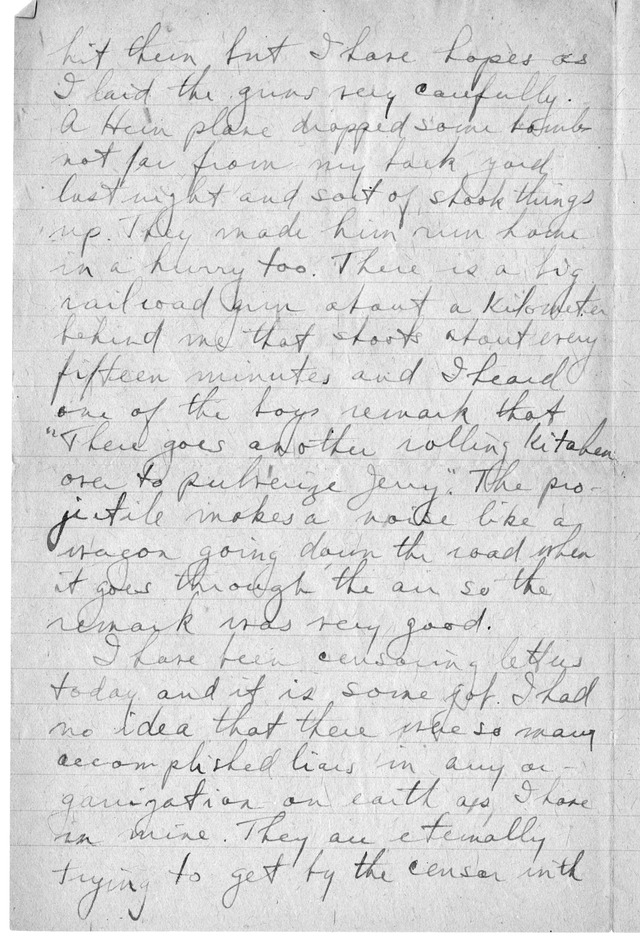 hit them but I have hopes as
I laid the guns very carefully.
A Hun plane dropped some bombs
not far from my back yard
last night and sort of shook things
up. They made him run home
in a hurry too. There is a big
railroad gun about a kilometer
behind me that shoots about every
fifteen minutes and I heard
one of the boys remark that
"There goes another rolling kitchen
over to pulverize Jerry". The pro-
jectile makes a noise like a
wagon going down the road when
it goes through the air so the
remark was very good.
I have been censoring letters
today and it is some job. I had
no idea that there were so many
accomplished liars in any or-
ganization on earth as I have
in mine. They are eternally
trying to get by the censor with